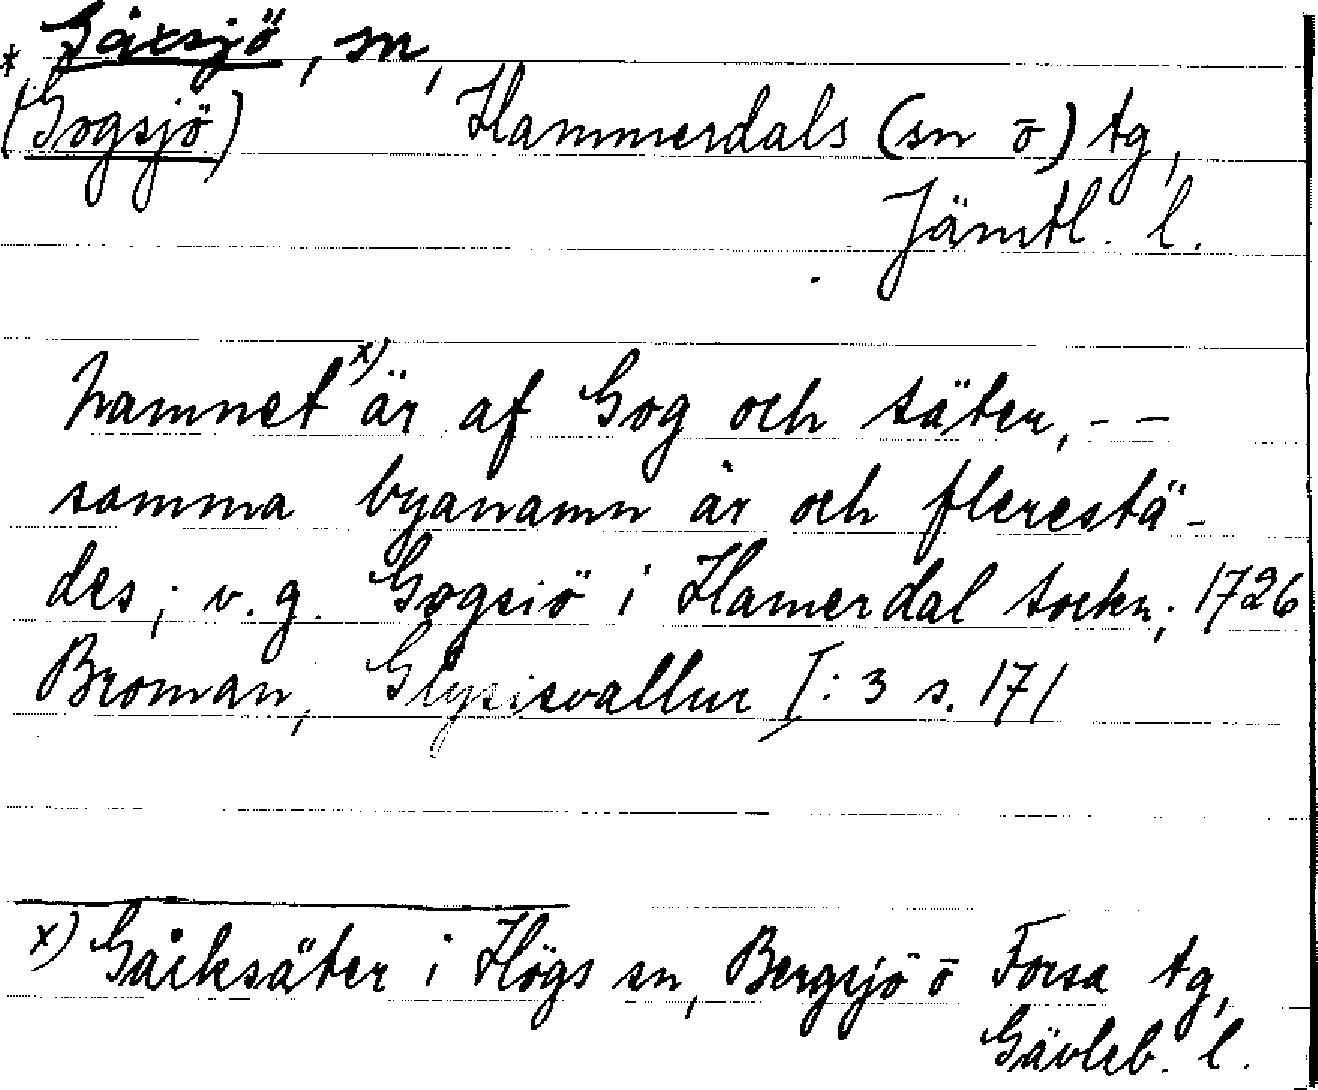 * Gåxsjö, sn,
(Gogsjö) Hammerdals (sn ö) tg,
Jämtl. l.
namnet x) är af Gog och säter, - -
samma byanamn är och flerestä-
des; v. g. Gogsiö i Hamerdal sockn; 1726
Broman, Glysisvallur I: 3 s. 171
x) Gåcksäter i Högs sn, Bergsjö ö Forsa tg,
Gävleb. l.